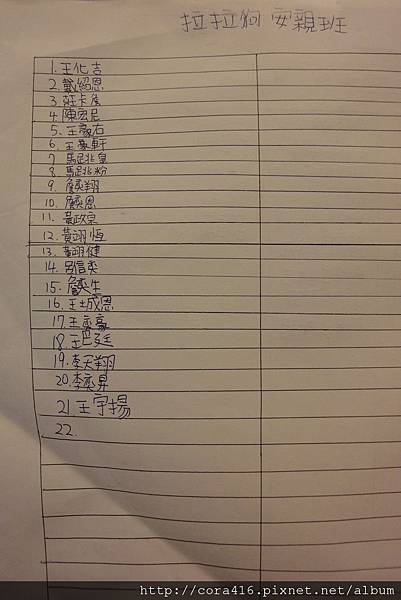 拉拉狗 安親班
1. 王化吉
2. 戴紹恩
3. 莊卡魚
4. 陳宏足
5. 王豪右
6. 王豪軒
7 馬趴皇
8. 馬趴粉
9. 詹奕翔
10. 詹奕恩
11. 黃政宗
12. 黃翊恆
13. 黃翊健
14. 呂信奕
15. 詹奕生
16. 王城恩
17. 王奕豪
18. 王邑廷
19. 李天翔
20. 李奕昇
21 王宇揚
22.
http://cora416.pixnet.net/album